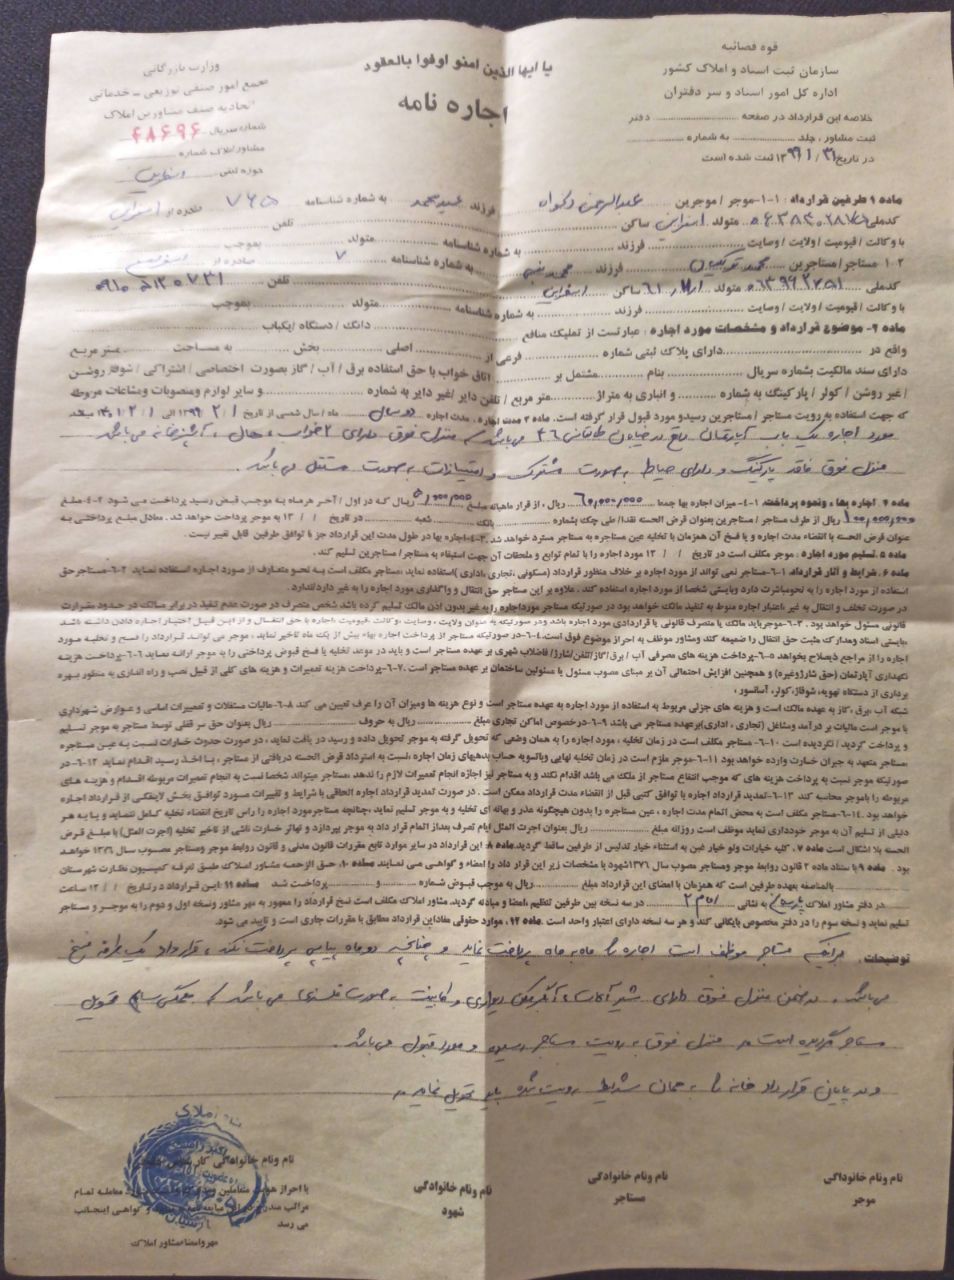 قوه قضائیه
سازمان ثبت اسناد و املاک کشور
اداره کل امور اسناد و سر دفتران
خلاصه این قرارداد در صفحه ............ دفتر
ثبت مشاور، جلد ............ به شماره ............
در تاریخ ۳۱ / ۱ / ۱۳۹۹ ثبت شده است
یا ایها الذین امنو اوفوا بالعقود
اجاره نامه
وزارت بازرگانی
مجمع امور صنفی توزیعی - خدماتی
اتحادیه صنف مشاورین املاک
شماره سریال ۴۸۶۹۶
مشاور املاک شماره
حوزه ثبتی اسفراین
ماده ۱ طرفین قرارداد : ۱-۱- موجر / موجرین عبدالرحمن فرزند به شماره شناسنامه ۷۶۵ صادره از اسفراین
کدملی متولد اسفراین ساکن تلفن
با وکالت / قیومیت / ولایت / وصایت فرزند به شماره شناسنامه متولد بموجب
۱-۲ مستاجر / مستاجرین محمد فرزند محمد به شماره شناسنامه ۷ صادره از
کدملی متولد ساکن اسفراین تلفن
با وکالت / قیومیت / ولایت / وصایت فرزند به شماره شناسنامه متولد بموجب
ماده ۲- موضوع قرارداد و مشخصات مورد اجاره : عبارتست از تملیک منافع دانگ / دستگاه / یکباب
واقع در دارای پلاک ثبتی شماره فرعی از اصلی بخش به مساحت متر مربع
دارای سند مالکیت بشماره سریال بنام مشتمل بر اتاق خواب با حق استفاده برق / آب / گاز بصورت اختصاصی / اشتراکی / شوفاژ روشن
/ غیر روشن / کولر / پارکینگ به شماره و انباری به متراژ متر مربع / تلفن دایر / غیر دایر به شماره و سایر لوازم و منصوبات و مشاعات مربوطه
که جهت استفاده به رویت مستاجر / مستاجرین رسیده و مورد قبول قرار گرفته است. ماده ۳ مدت اجاره ، مدت اجاره دو سال ماه / سال شمسی از تاریخ ۱ / ۲ / ۱۳۹۹ الی ۱ / ۲ / ۱۴۰۱
مورد اجاره یک باب آپارتمان واقع در خیابان طالقانی ۳۶ می باشد که منزل فوق دارای ۲ خواب ، حال ، آشپزخانه می باشد
منزل فوق فاقد پارکینگ و دارای حیاط به صورت مشترک و امتیازات به صورت مستقل می باشد .
ماده ۴ اجاره بها ، ونحوه پرداخت. ۱-۴- میزان اجاره بها جمعا ۶۰,۰۰۰,۰۰۰ ریال ، از قرار ماهیانه مبلغ ریال که در اول / آخر هر ماه به موجب قبض رسید پرداخت می شود ۲-۴- مبلغ
۱۰۰,۰۰۰,۰۰۰ ریال از طرف مستاجر / مستاجرین بعنوان قرض الحسنه نقدا / طی چک بشماره بانک شعبه در تاریخ / / ۱۳ به موجر پرداخت خواهد شد. معادل مبلغ پرداختی به
عنوان قرض الحسنه با انقضاء مدت اجاره و یا فسخ آن همزمان با تخلیه عین مستاجره به مستاجر مسترد خواهد شد. ۳-۴- اجاره بها در طول مدت این قرارداد جز با توافق طرفین قابل تغییر نیست.
ماده ۵ .تسلیم مورد اجاره : موجر مکلف است در تاریخ / / ۱۳ مورد اجاره را با تمام توابع و ملحقات آن جهت استیفاء به مستاجر / مستاجرین تسلیم کند .
ماده ۶ . شرایط و آثار قرارداد. ۱-۶- مستاجر نمی تواند از مورد اجاره بر خلاف منظور قرارداد (مسکونی ،تجاری ،اداری )استفاده نماید ،مستاجر مکلف است به نحو متعارف از مورد اجاره استفاده نماید .۲-۶- مستاجر حق
استفاده از مورد اجاره را به نحو مباشرت دارد وبایستی شخصا از مورد اجاره استفاده کند . علاوه بر این مستاجر حق انتقال و واگذاری مورد اجاره را به غیر دارد/ندارد.
در صورت تخلف و انتقال به غیر ،اعتبار اجاره منوط به تنفیذ مالک خواهد بود در صورتیکه مستاجر مورد اجاره را به غیر بدون اذن مالک تسلیم کرده باشد شخص متصرف در صورت عدم تنفیذ در برابر مالک در حدود مقررات
قانونی مسئول خواهد بود . ۳-۶- موجر باید مالک یا متصرف قانونی یا قراردادی مورد اجاره باشد ودر صورتیکه به عنوان ولایت ، وصایت ،وکالت ،قیمومیت ،اجاره با حق انتقال و از این قبیل اختیار اجاره دادن داشته باشد
،بایستی اسناد ومدارک مثبت حق انتقال را ضمیمه کند ومشاور موظف به احراز موضوع فوق است.۴-۶- در صورتیکه مستاجر از پرداخت اجاره بهاء بیش از یک ماه تاخیر نماید ، موجر می تواند قرارداد را فسخ و تخلیه مورد
اجاره را از مراجع ذیصلاح بخواهد ۵-۶- پرداخت هزینه های مصرفی آب / برق/گاز/تلفن/شارژ/ فاضلاب شهری بر عهده مستاجر است و باید در موعد تخلیه یا فسخ قبوض پرداختی را به موجر ارائه نماید ۶-۶- پرداخت هزینه
نگهداری آپارتمان (حق شارژ وغیره) و همچنین افزایش احتمالی آن بر مبنای مصوب مسئول یا مسئولین ساختمان بر عهده مستاجر است .۷-۶- پرداخت هزینه تعمیرات و هزینه های کلی از قبیل نصب و راه اندازی به منظور بهره
برداری از دستگاه تهویه، شوفاژ، کولر، آسانسور ،
شبکه آب ،برق ،گاز به عهده مالک است و هزینه های جزئی مربوط به استفاده از مورد اجاره به عهده مستاجر است و نوع هزینه ها ومیزان آن را عرف تعیین می کند ۸-۶- مالیات مستغلات و تعمیرات اساسی و عوارض شهرداری
با موجر است مالیات بر درآمد ومشاغل (تجاری ، اداری)برعهده مستاجر می باشد ۹-۶- درخصوص اماکن تجاری مبلغ ریال به حروف ریال بعنوان حق سر قفلی توسط مستاجر به موجر تسلیم
و پرداخت گردید / نگردیده است ۱۰-۶- مستاجر مکلف است در زمان تخلیه ، مورد اجاره را به همان وضعی که تحویل گرفته به موجر تحویل داده و رسید در یافت نماید ، در صورت حدوث خسارات نسبت به عین مستاجره
،مستاجر متعهد به جبران خسارت وارده خواهد بود ۱۱-۶- موجر ملزم است در زمان تخلیه نهایی وباتسویه حساب بدهیهای زمان اجاره ،نسبت به استرداد قرض الحسنه دریافتی از مستاجر ، با اخذ رسید اقدام نماید ۱۲-۶- در
صورتیکه موجر نسبت به پرداخت هزینه های که موجب انتفاع مستاجر از ملک می باشد اقدام نکند و به مستاجر نیز اجازه انجام تعمیرات لازم را ندهد ،مستاجر میتواند شخصا نسبت به انجام تعمیرات مربوطه اقدام و هزینه های
مربوطه را باموجر محاسبه کند ۱۳-۶- تمدید قرارداد اجاره با توافق کتبی قبل از انقضاء مدت قرارداد ممکن است . در صورت تمدید قرارداد اجاره الحاقی با شرایط و تغییرات مورد توافق بخش لاینفکی از قرارداد اجاره
خواهد بود .۱۴-۶- مستاجر مکلف است به محض اتمام مدت اجاره ، عین مستاجره را بدون هیچگونه عذر و بهانه ای تخلیه و به موجر تسلیم نماید ،چنانچه مستاجر مورد اجاره را راس تاریخ انقضاء تخلیه کامل ننماید و یا به هر
دلیلی از تسلیم آن به موجر خودداری نماید موظف است روزانه مبلغ ریال بعنوان اجرت المثل ایام تصرف بعد از اتمام قرار داد به موجر بپردازد و تهاتر خسارت ناشی از تاخیر تخلیه (اجرت المثل) با مبلغ قرض
الحسنه بلا اشکال است ماده ۷. کلیه خیارات ولو خیار غبن به استثناء خیار تدلیس از طرفین ساقط گردید.ماده ۸: این قرارداد در سایر موارد تابع مقررات قانون مدنی و قانون روابط موجر ومستاجر مصوب سال ۱۳۷۶ خواهد
بود . ماده ۹ با ستناد ماده ۲ قانون روابط موجر ومستاجر مصوب سال ۱۳۷۶شهود با مشخصات زیر این قرار داد را امضاء و گواهی می نمایند ماده ۱۰. حق الزحمه مشاور املاک طبق تعرفه کمیسیون نظارت شهرستان
بالمناصفه بعهده طرفین است که همزمان با امضای این قرارداد مبلغ ریال به موجب قبوض شماره و پرداخت شد ماده ۱۱ این قرارداد در تاریخ / / ۱۳ ساعت
در دفتر مشاور املاک به نشانی امام ۲ در سه نسخه بین طرفین تنظیم ،امضا و مبادله گردید. مشاور املاک مکلف است نسخ قرارداد را ممهور به مهر مشاور ونسخه اول و دوم را به موجر و مستاجر
تسلیم نماید و نسخه سوم را در دفتر مخصوص بایگانی کند و هر سه نسخه دارای اعتبار واحد است . ماده ۱۲ ، موارد حقوقی مفاد این قرارداد مطابق با مقررات جاری است و تایید می شود.
توضیحات . مستاجر موظف است اجاره را ماه به ماه پرداخت نماید و چنانچه دو ماه پیاپی پرداخت نکند ، قرارداد یک طرفه فسخ
می باشد . در ضمن منزل فوق دارای شیر آلات ، آبگرمکن دیواری و کابینت به صورت فلزی می باشد که همگی سالم تحویل
مستاجر گردیده است و منزل فوق به رویت مستاجر رسیده و مورد قبول می باشد .
و در پایان قرارداد خانه را به همان شرایط رویت شده باید تحویل نماید
نام ونام خانوادگی
موجر
نام ونام خانوادگی
مستاجر
نام ونام خانوادگی
شهود
نام ونام خانوادگی
با احراز هویت متعاملین معامله تمام
مراتب مندرج و گواهی اینجانب
می رسد
مهر وامضاء مشاور املاک